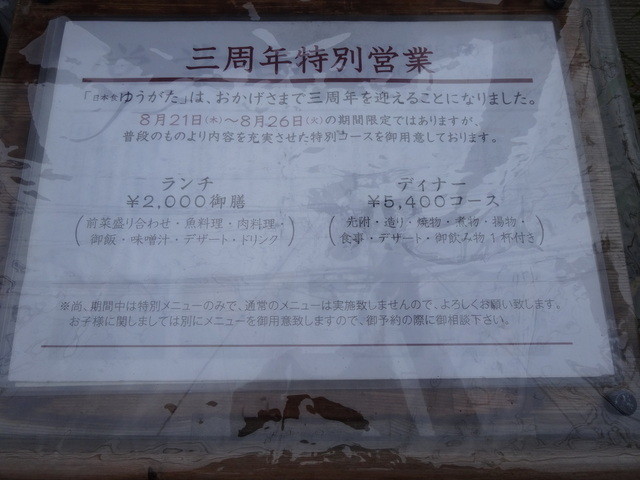 三周年特別営業
「日本食ゆうがた」は、おかげさまで三周年を迎えることになりました。
8月21日(水)～8月26日(火)の期間限定ではありますが、
普段のものより内容を充実させた特別コースを御用意しております。
ランチ
¥2,000御膳
(前菜盛り合わせ・魚料理・肉料理・
御飯・味噌汁・デザート・ドリンク)
ディナー
¥5,400コース
(先附・造り・焼物・煮物・揚物・
食事・デザート・御飲み物1杯付き)
※尚、期間中は特別メニューのみで、通常のメニューは実施致しませんので、よろしくお願い致します。
お子様に関しましては別にメニューを御用意致しますので、御予約の際に御相談下さい。